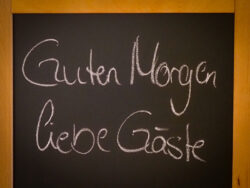 Guten Morgen
liebe Gäste